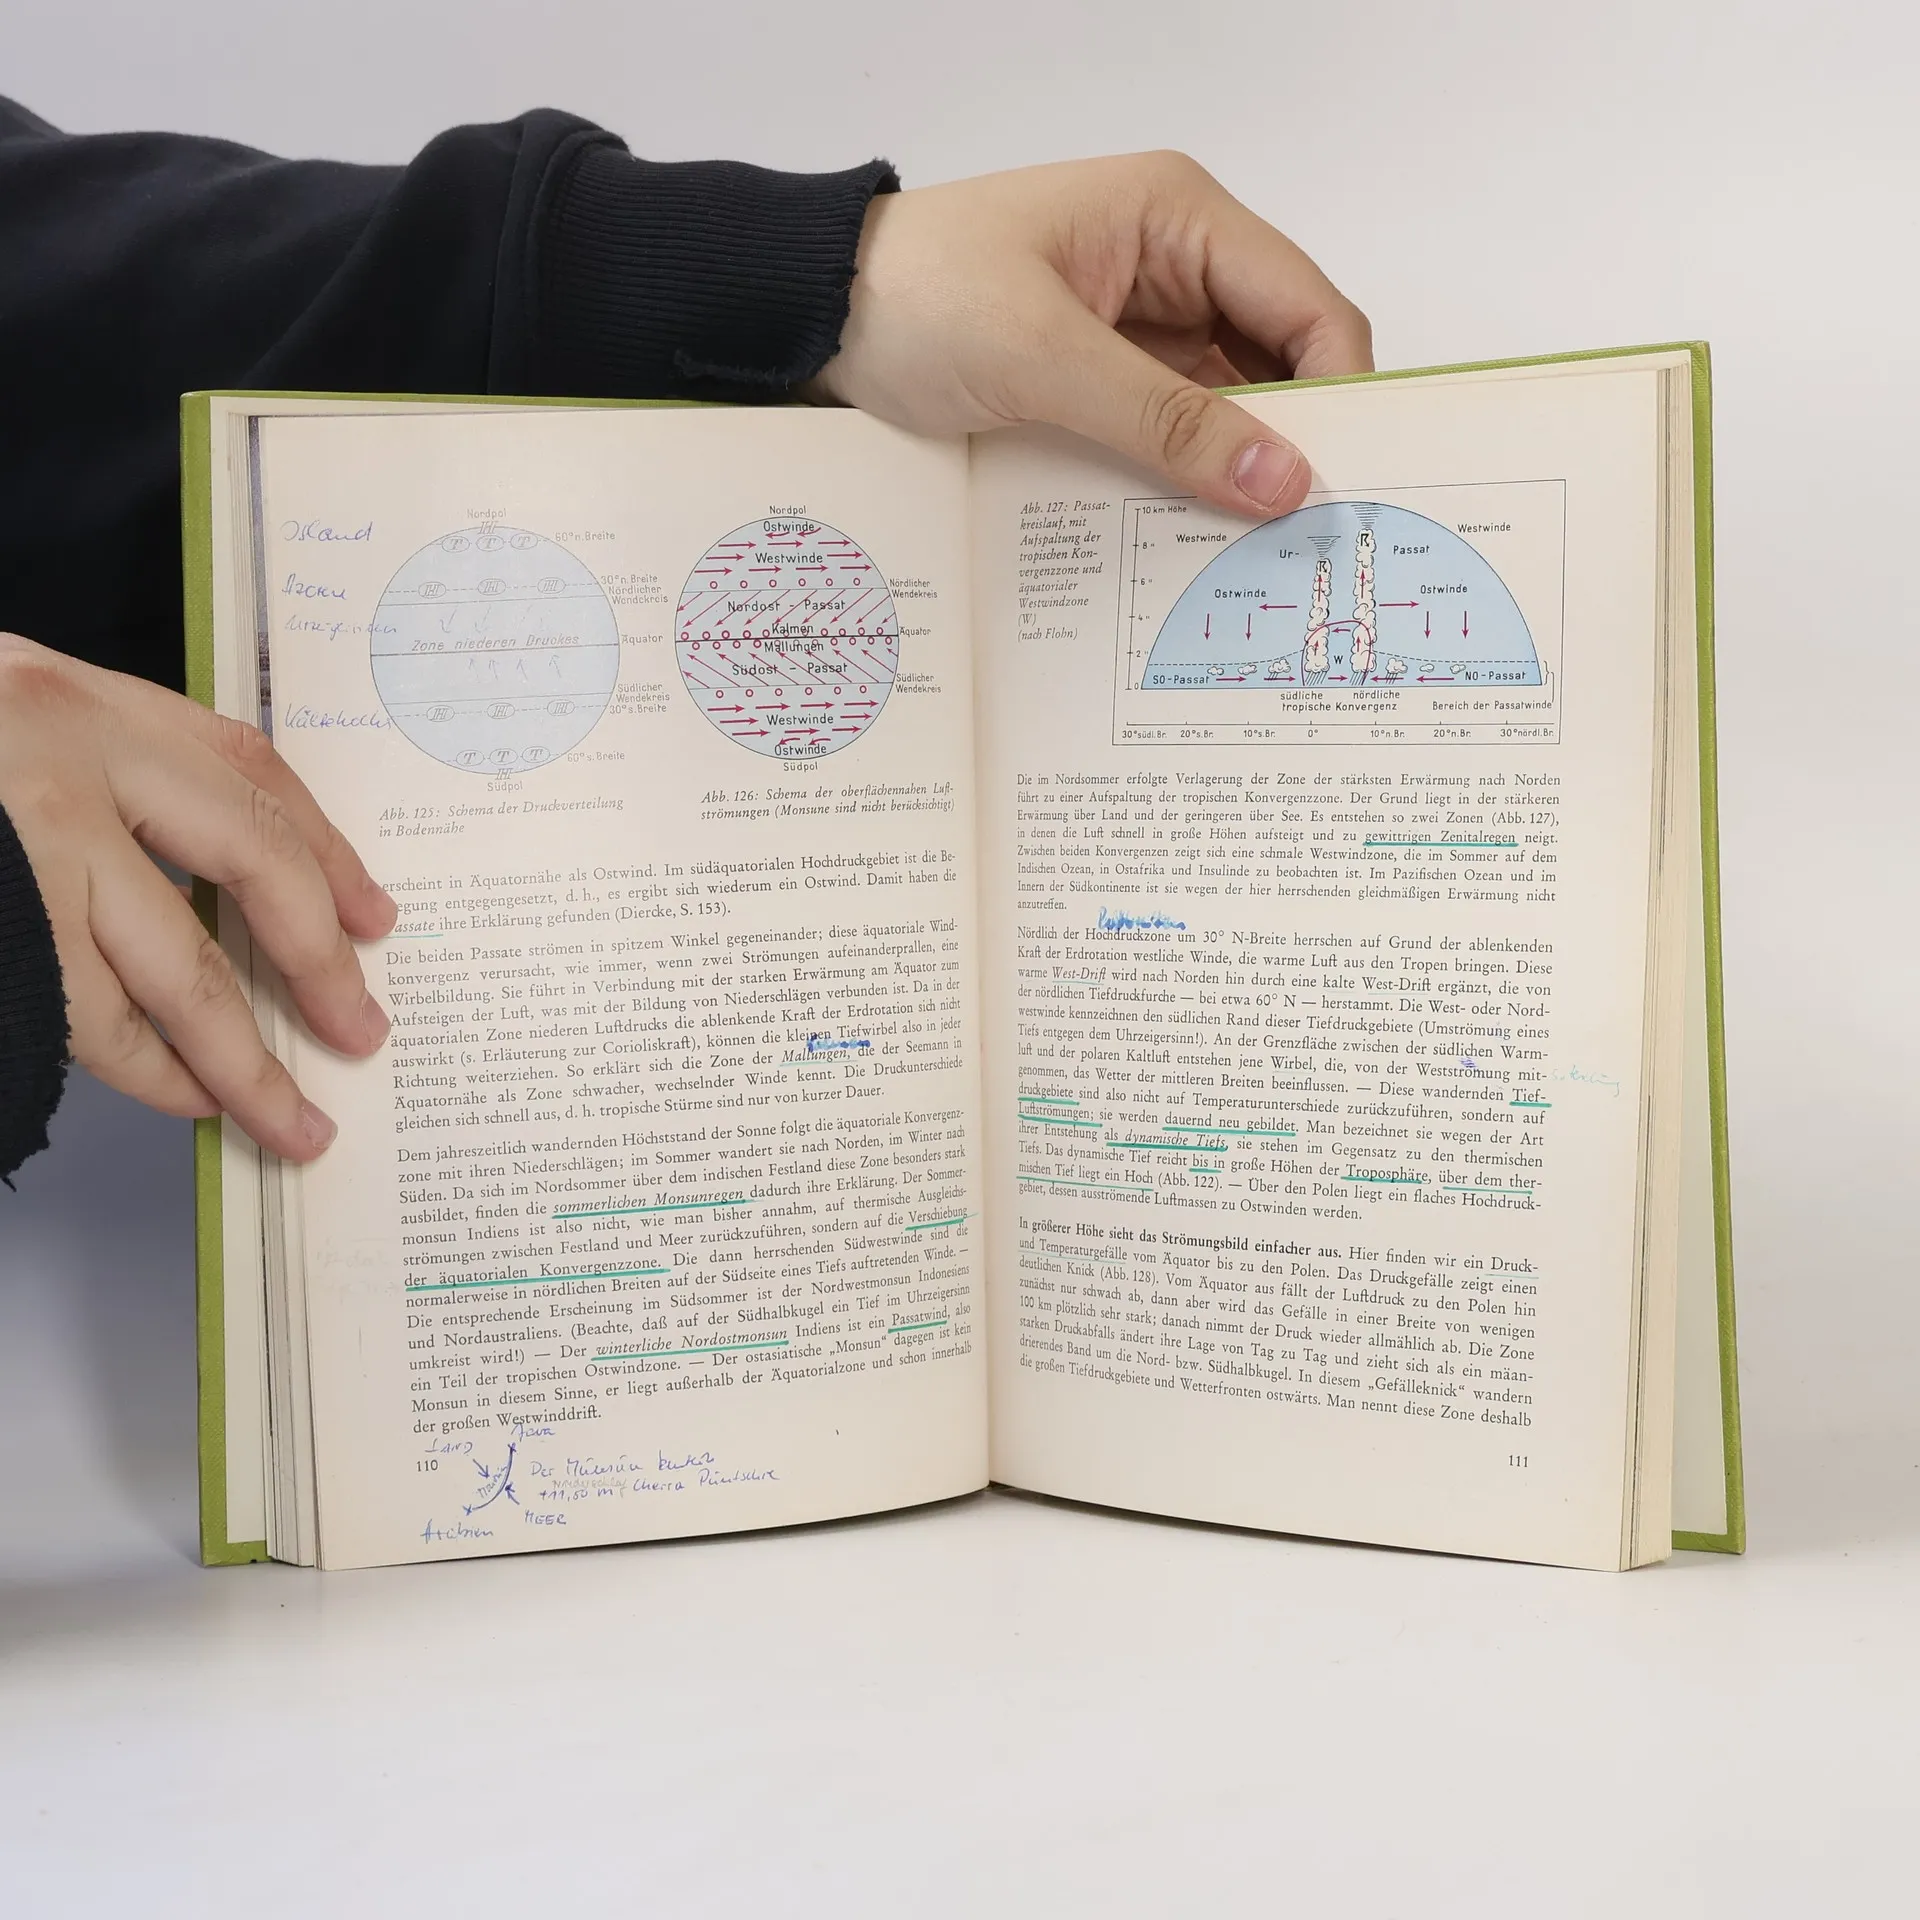 Island
Nordpol
H
T T T
60° n. Breite
H H H
30° n. Breite
Nördlicher
Wendekreis
Zone niederen Druckes
Äquator
Südlicher
Wendekreis
30° s. Breite
H H H
T T T
60° s. Breite
H
Südpol
Abb. 125: Schema der Druckverteilung
in Bodennähe
Nordpol
Ostwinde
Westwinde
Nördlicher
Wendekreis
Nordost - Passat
Kalmen
Äquator
Mallungen
Südost - Passat
Südlicher
Wendekreis
Westwinde
Ostwinde
Südpol
Abb. 126: Schema der oberflächennahen Luft-
strömungen (Monsune sind nicht berücksichtigt)
erscheint in Äquatornähe als Ostwind. Im südäquatorialen Hochdruckgebiet ist die Be-
egung entgegengesetzt, d. h., es ergibt sich wiederum ein Ostwind. Damit haben die
assate ihre Erklärung gefunden (Diercke, S. 153).
Die beiden Passate strömen in spitzem Winkel gegeneinander; diese äquatoriale Wind-
konvergenz verursacht, wie immer, wenn zwei Strömungen aufeinanderprallen, eine
Wirbelbildung. Sie führt in Verbindung mit der starken Erwärmung am Äquator zum
Aufsteigen der Luft, was mit der Bildung von Niederschlägen verbunden ist. Da in der
äquatorialen Zone niederen Luftdrucks die ablenkende Kraft der Erdrotation sich nicht
auswirkt (s. Erläuterung zur Corioliskraft), können die kleinen Tiefwirbel also in jeder
Richtung weiterziehen. So erklärt sich die Zone der Mallungen, die der Seemann in
Äquatornähe als Zone schwacher, wechselnder Winde kennt. Die Druckunterschiede
gleichen sich schnell aus, d. h. tropische Stürme sind nur von kurzer Dauer.
Dem jahreszeitlich wandernden Höchststand der Sonne folgt die äquatoriale Konvergenz-
zone mit ihren Niederschlägen; im Sommer wandert sie nach Norden, im Winter nach
Süden. Da sich im Nordsommer über dem indischen Festland diese Zone besonders stark
ausbildet, finden die sommerlichen Monsunregen dadurch ihre Erklärung. Der Sommer-
monsun Indiens ist also nicht, wie man bisher annahm, auf thermische Ausgleichs-
strömungen zwischen Festland und Meer zurückzuführen, sondern auf die Verschiebung
der äquatorialen Konvergenzzone. Die dann herrschenden Südwestwinde sind die
normalerweise in nördlichen Breiten auf der Südseite eines Tiefs auftretenden Winde. —
Die entsprechende Erscheinung im Südsommer ist der Nordwestmonsun Indonesiens
und Nordaustraliens. (Beachte, daß auf der Südhalbkugel ein Tief im Uhrzeigersinn
umkreist wird!) — Der winterliche Nordostmonsun Indiens ist ein Passatwind, also
ein Teil der tropischen Ostwindzone. — Der ostasiatische „Monsun“ dagegen ist kein
Monsun in diesem Sinne, er liegt außerhalb der Äquatorialzone und schon innerhalb
der großen Westwinddrift.
Java
110
Der
MEER
Abb. 127: Passat-
kreislauf, mit
Aufspaltung der
tropischen Kon-
vergenzzone und
äquatorialer
Westwindzone
(W)
(nach Flohn)
10 km Höhe
8 "
6 "
4 "
2 "
0
Westwinde
Westwinde
Ur-
Passat
Ostwinde
Ostwinde
W
SO-Passat
NO-Passat
südliche nördliche
tropische Konvergenz
Bereich der Passatwinde
30° südl. Br. 20° s. Br. 10° s. Br. 0° 10° n. Br. 20° n. Br. 30° nördl. Br.
Die im Nordsommer erfolgte Verlagerung der Zone der stärksten Erwärmung nach Norden
führt zu einer Aufspaltung der tropischen Konvergenzzone. Der Grund liegt in der stärkeren
Erwärmung über Land und der geringeren über See. Es entstehen so zwei Zonen (Abb. 127),
in denen die Luft schnell in große Höhen aufsteigt und zu gewittrigen Zenitalregen neigt.
Zwischen beiden Konvergenzen zeigt sich eine schmale Westwindzone, die im Sommer auf dem
Indischen Ozean, in Ostafrika und Insulinde zu beobachten ist. Im Pazifischen Ozean und im
Innern der Südkontinente ist sie wegen der hier herrschenden gleichmäßigen Erwärmung nicht
anzutreffen.
Nördlich der Hochdruckzone um 30° N-Breite herrschen auf Grund der ablenkenden
Kraft der Erdrotation westliche Winde, die warme Luft aus den Tropen bringen. Diese
warme West-Drift wird nach Norden hin durch eine kalte West-Drift ergänzt, die von
der nördlichen Tiefdruckfurche — bei etwa 60° N — herstammt. Die West- oder Nord-
westwinde kennzeichnen den südlichen Rand dieser Tiefdruckgebiete (Umströmung eines
Tiefs entgegen dem Uhrzeigersinn!). An der Grenzfläche zwischen der südlichen Warm-
luft und der polaren Kaltluft entstehen jene Wirbel, die, von der Westströmung mit-
genommen, das Wetter der mittleren Breiten beeinflussen. — Diese wandernden Tief-
druckgebiete sind also nicht auf Temperaturunterschiede zurückzuführen, sondern auf
Luftströmungen; sie werden dauernd neu gebildet. Man bezeichnet sie wegen der Art
ihrer Entstehung als dynamische Tiefs, sie stehen im Gegensatz zu den thermischen
Tiefs. Das dynamische Tief reicht bis in große Höhen der Troposphäre, über dem ther-
mischen Tief liegt ein Hoch (Abb. 122). — Über den Polen liegt ein flaches Hochdruck-
gebiet, dessen ausströmende Luftmassen zu Ostwinden werden.
In größerer Höhe sieht das Strömungsbild einfacher aus. Hier finden wir ein Druck-
und Temperaturgefälle vom Äquator bis zu den Polen. Das Druckgefälle zeigt einen
deutlichen Knick (Abb. 128). Vom Äquator aus fällt der Luftdruck zu den Polen hin
zunächst nur schwach ab, dann aber wird das Gefälle in einer Breite von wenigen
100 km plötzlich sehr stark; danach nimmt der Druck wieder allmählich ab. Die Zone
starken Druckabfalls ändert ihre Lage von Tag zu Tag und zieht sich als ein mäan-
drierendes Band um die Nord- bzw. Südhalbkugel. In diesem „Gefälleknick“ wandern
die großen Tiefdruckgebiete und Wetterfronten ostwärts. Man nennt diese Zone deshalb
111